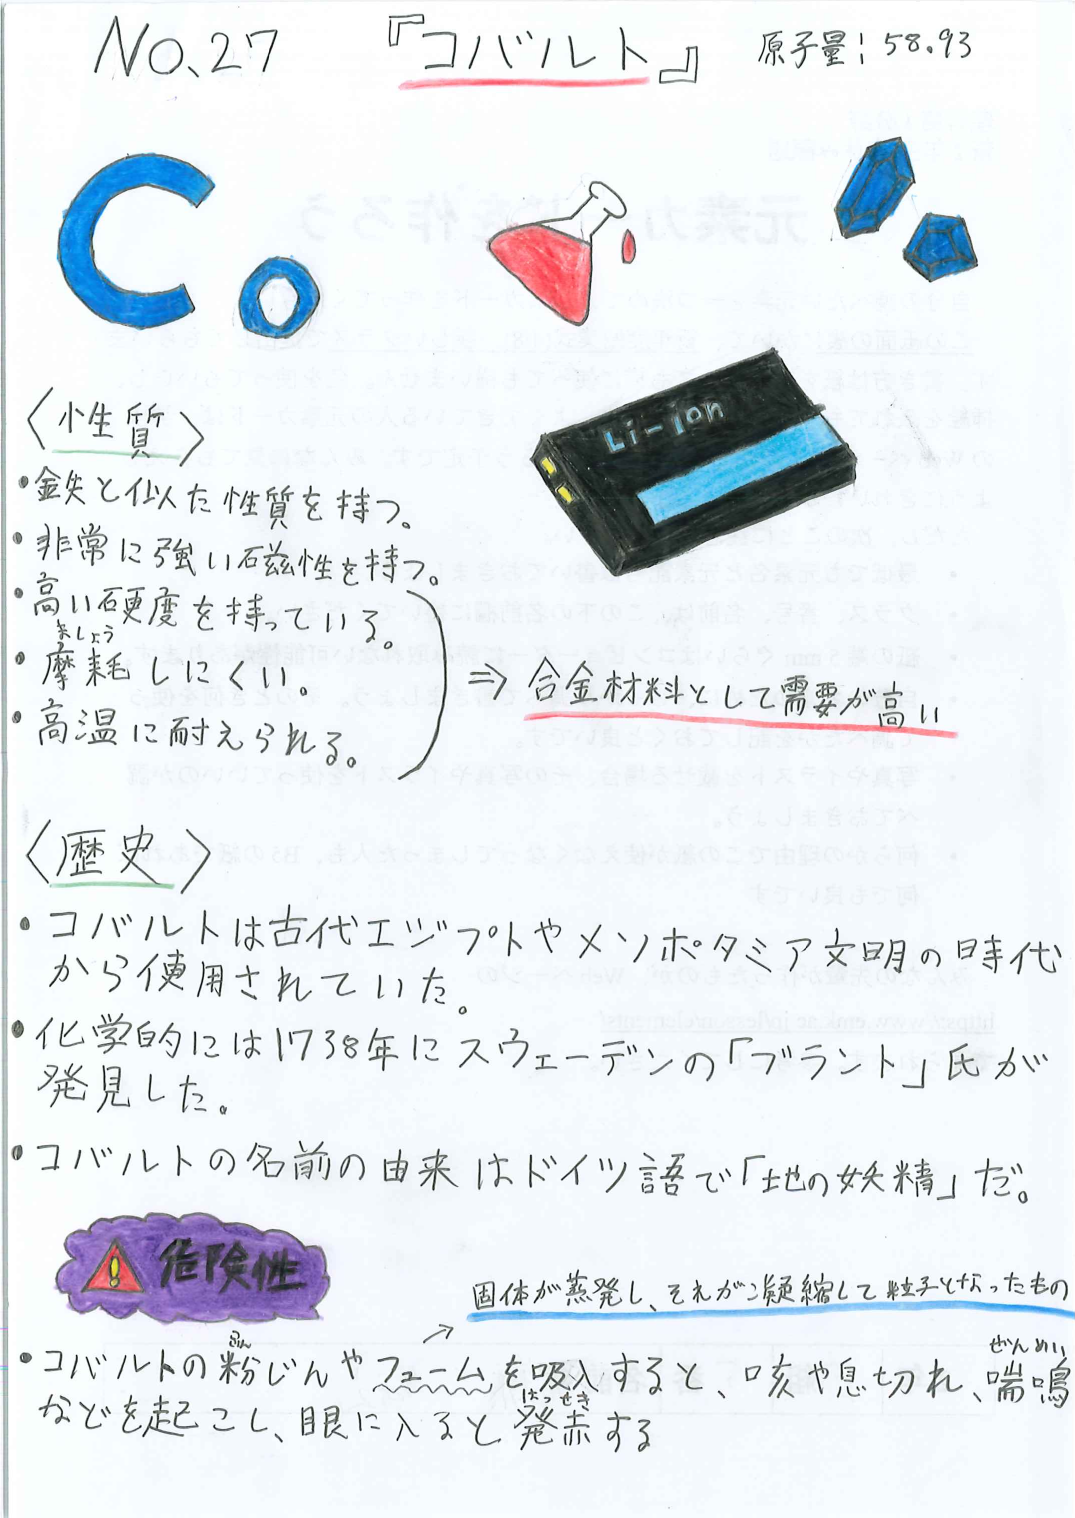 No.27 『コバルト』 原子量: 58.93
Co
Li-ion
〈性質〉
•鉄と似た性質を持つ。
•非常に強い磁性を持つ。
•高い硬度を持っている。
ましょう
•摩耗しにくい。
•高温に耐えられる。
⇒ 合金材料として需要が高い
〈歴史〉
•コバルトは古代エジプトやメソポタミア文明の時代
から使用されていた。
•化学的には1738年にスウェーデンの「ブラント」氏が
発見した。
•コバルトの名前の由来はドイツ語で「地の妖精」だ。
危険性
固体が蒸発し、それが凝縮して粒子となったもの
ふん ぜんめい
•コバルトの粉じんやフュームを吸入すると、咳や息切れ、喘鳴
はっせき
などを起こし、眼に入ると発赤する